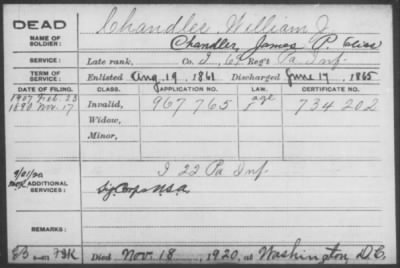 DEAD
Chandlee William J.
NAME OF SOLDIER: Chandler, James P. Alias
SERVICE: Late rank, Co. I, 65 Reg't Pa Inf.
TERM OF SERVICE: Enlisted Aug. 19, 1861 Discharged June 17, 1865
DATE OF FILING. CLASS. APPLICATION NO. LAW. CERTIFICATE NO.
1907 Feb. 23 age
1890 Nov. 17 Invalid, 967765 734202
Widow,
Minor,
I 22 Pa Inf
ADDITIONAL SERVICES: Sig Corps U.S.A.
REMARKS:
Died Nov. 18, 1920, at Washington D.C.